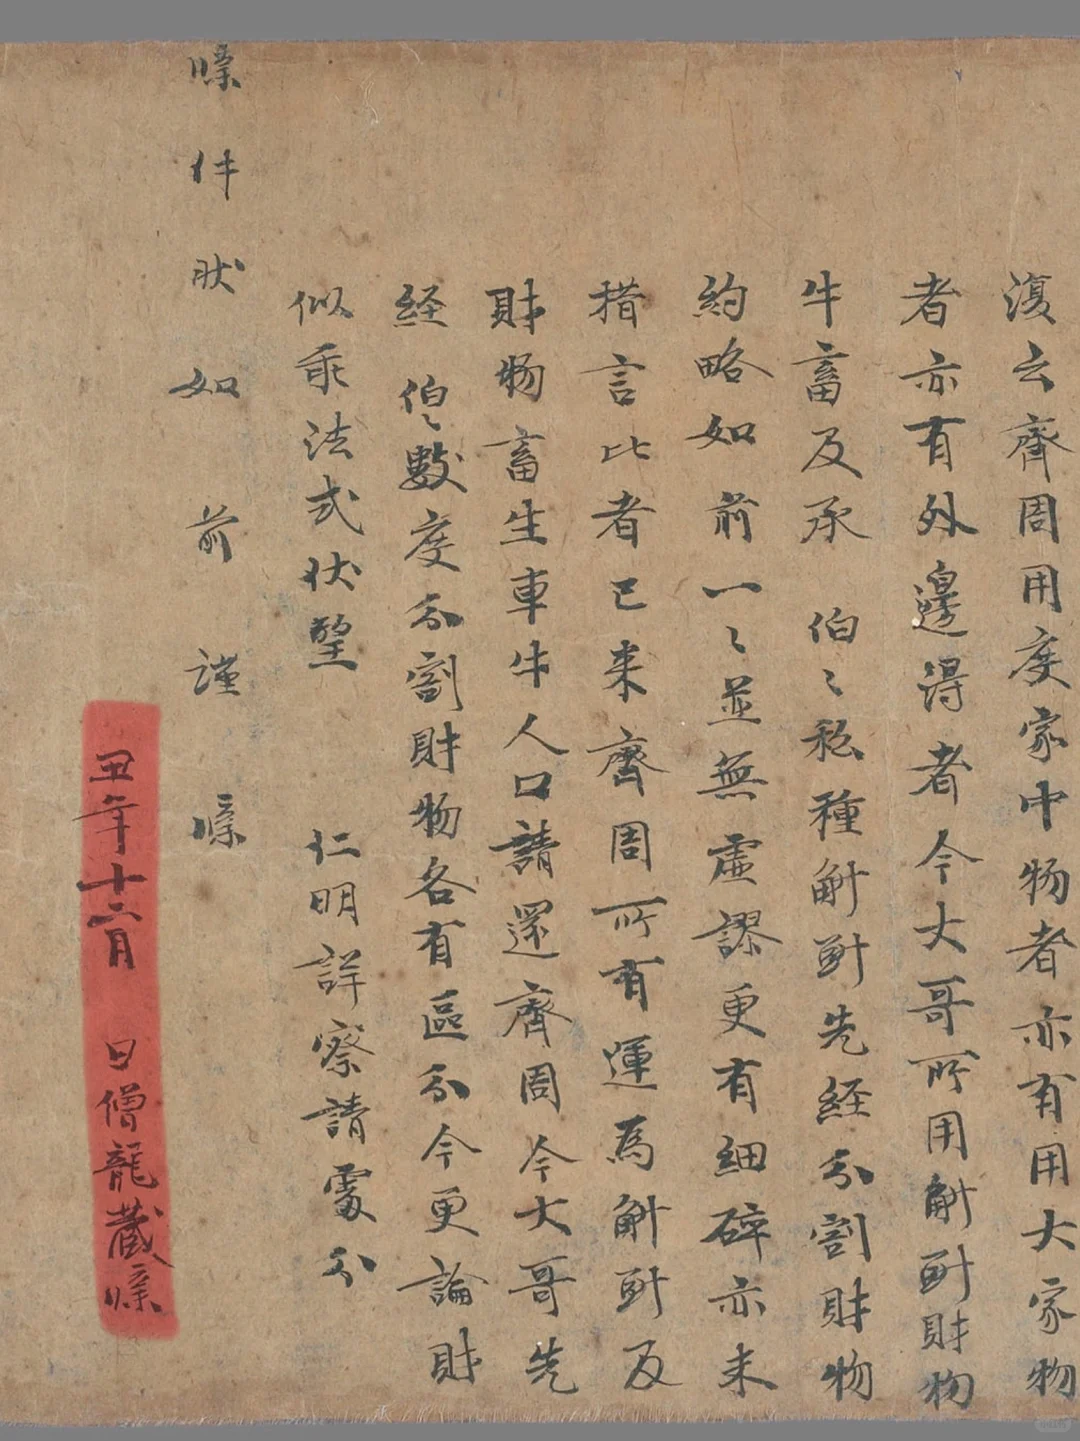 復云齊周用度家中物者亦有用大家物
者亦有外邊得者今大哥所用斛㪷財物
牛畜及承伯〻私種斛㪷先経分割財物
約略如前一〻並無虛謬更有細碎亦未
措言比者已来齊周所有運為斛㪷及
財物畜生車牛人口請還齊周今大哥先
経伯〻數度分割財物各有區分今更論財
似乖法式伏望仁明詳察請處分
牒件狀如前謹牒
丑年十二月日僧龍藏牒